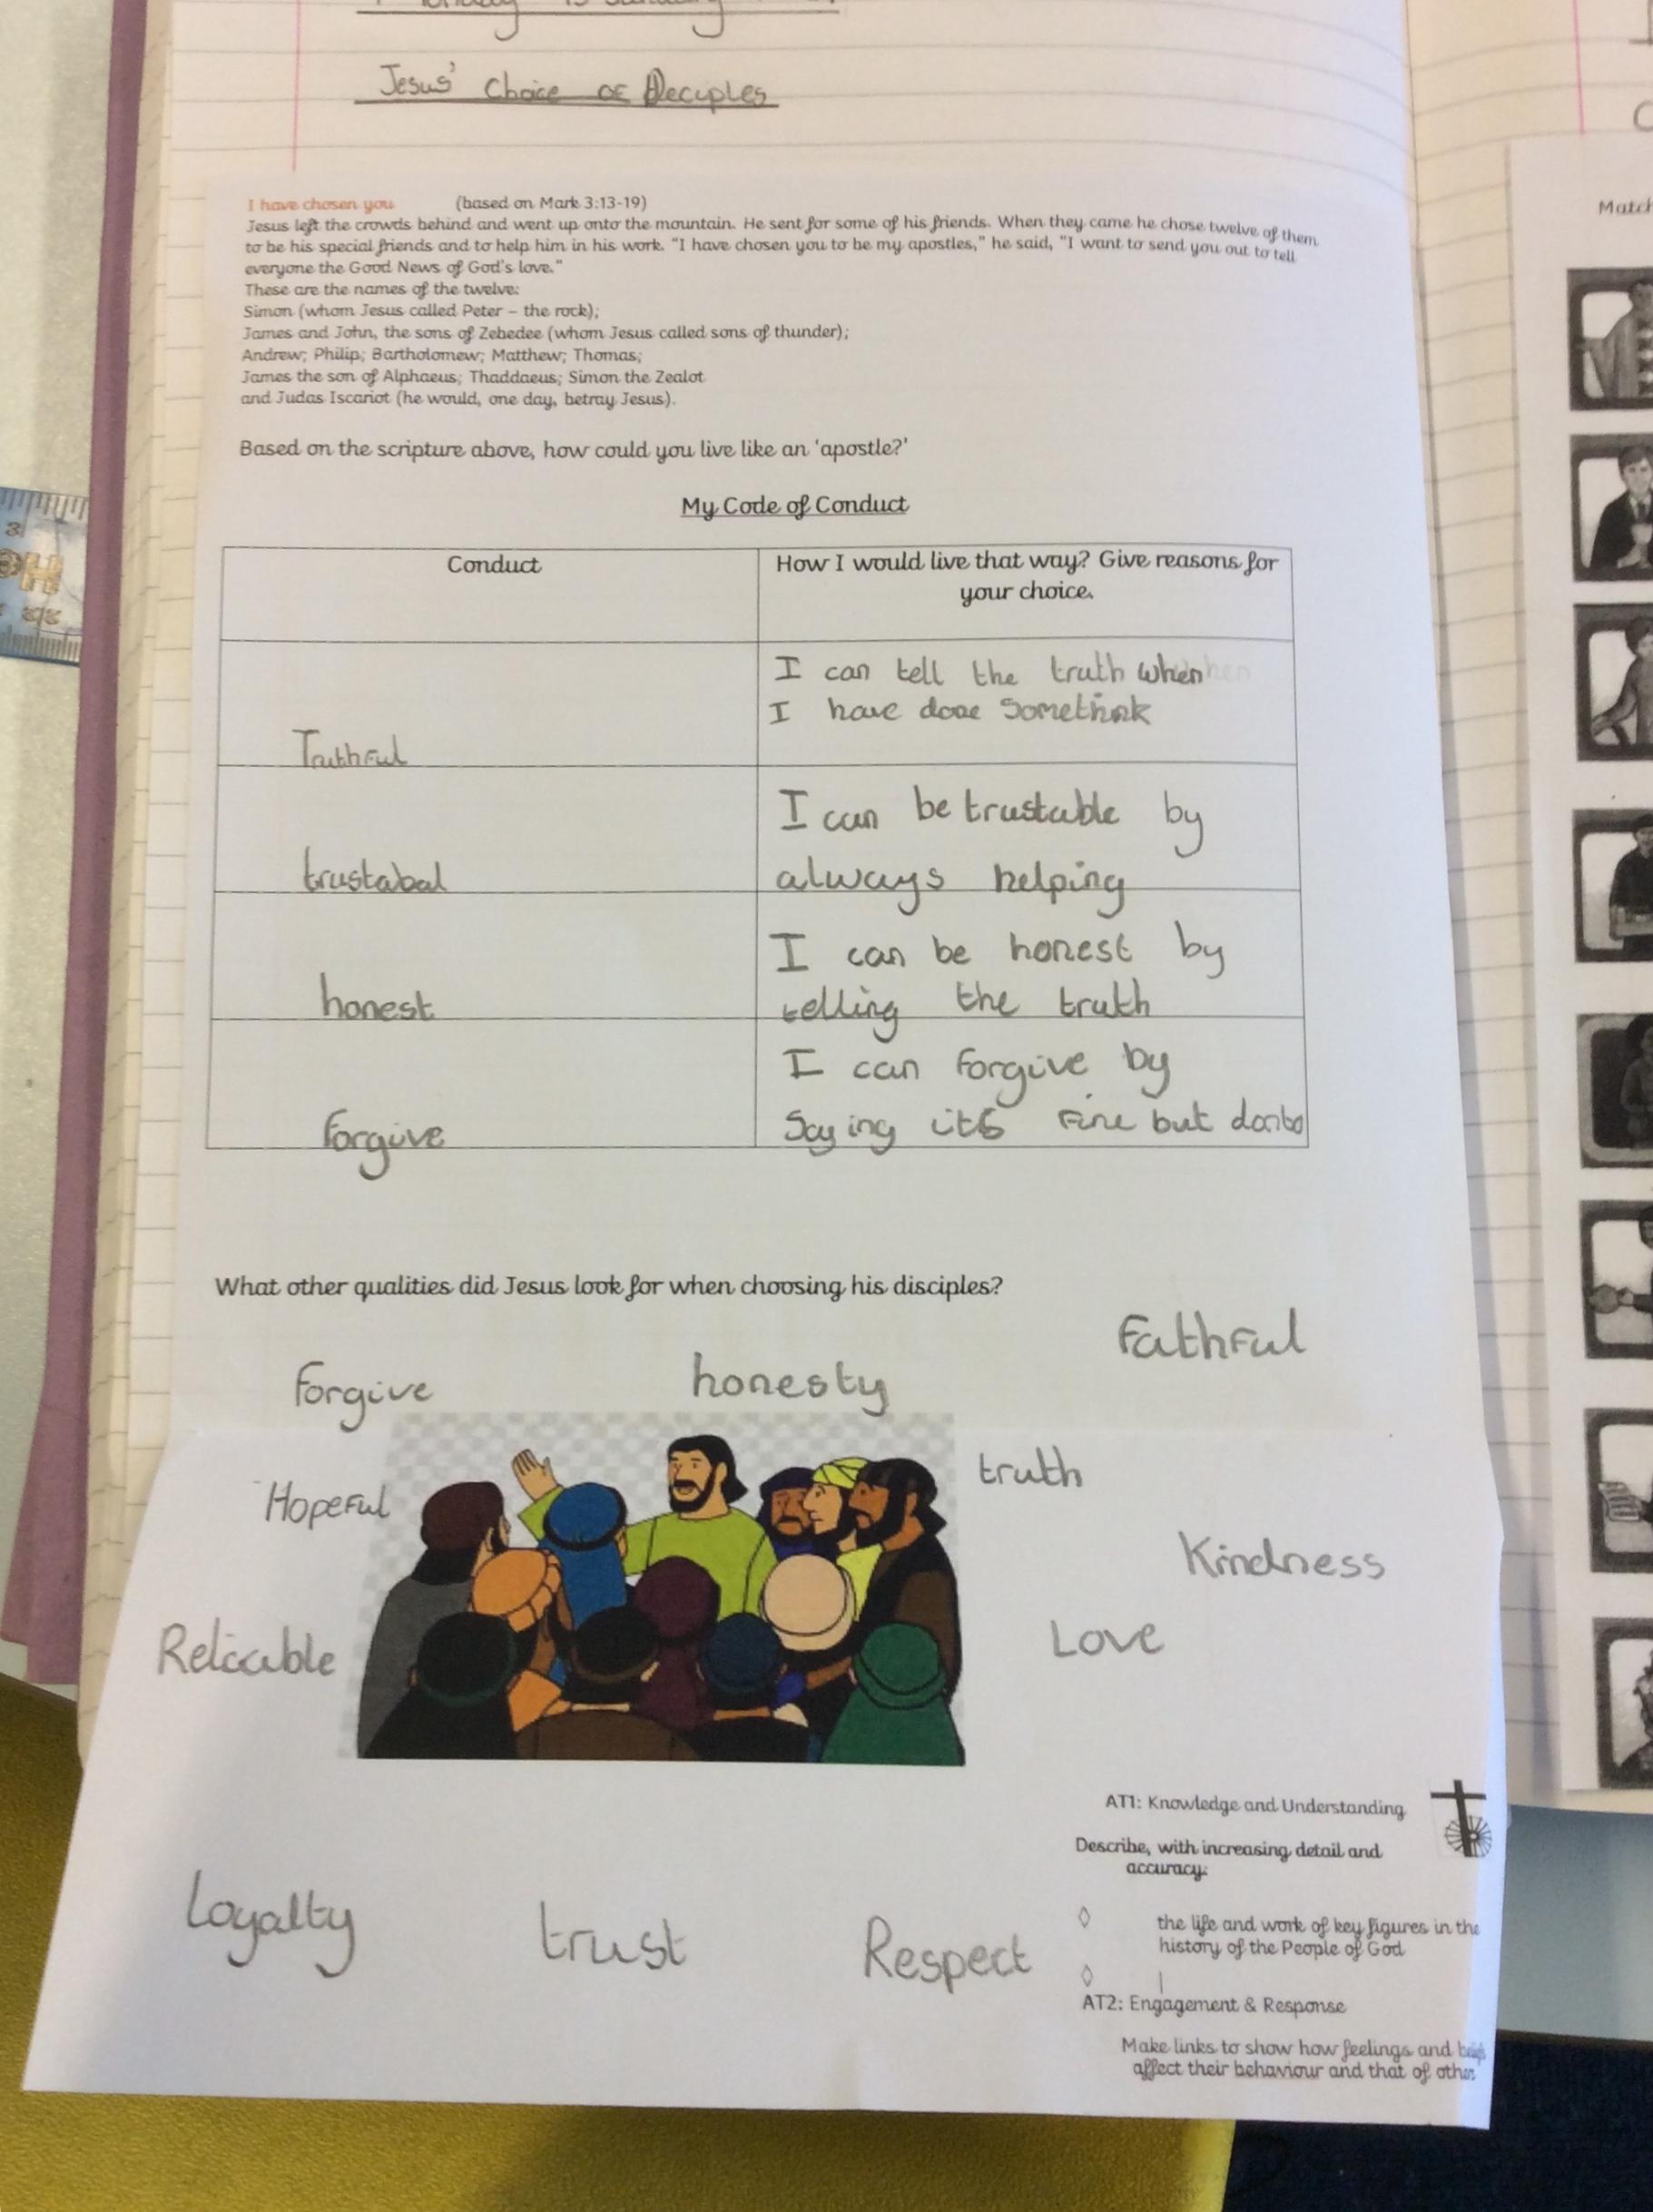 Jesus' Choice of Deciples
I have chosen you (based on Mark 3:13-19)
Jesus left the crowds behind and went up onto the mountain. He sent for some of his friends. When they came he chose twelve of them
to be his special friends and to help him in his work. "I have chosen you to be my apostles," he said, "I want to send you out to tell
everyone the Good News of God's love."
These are the names of the twelve:
Simon (whom Jesus called Peter – the rock);
James and John, the sons of Zebedee (whom Jesus called sons of thunder);
Andrew; Philip; Bartholomew; Matthew; Thomas;
James the son of Alphaeus; Thaddaeus; Simon the Zealot
and Judas Iscariot (he would, one day, betray Jesus).
Based on the scripture above, how could you live like an 'apostle?'
My Code of Conduct
Conduct
How I would live that way? Give reasons for
your choice.
Truthful
I can tell the truth when
I have done somethink
trustabal
I can be trustable by
always helping
honest
I can be honest by
telling the truth
forgive
I can forgive by
Saying its fine but
What other qualities did Jesus look for when choosing his disciples?
Fathful
forgive
honesty
truth
Hopeful
Kindness
Reliable
Love
Loyalty
trust
Respect
AT1: Knowledge and Understanding
Describe, with increasing detail and
accuracy:
the life and work of key figures in the
history of the People of God
AT2: Engagement & Response
Make links to show how feelings and
affect their behaviour and that of
Match